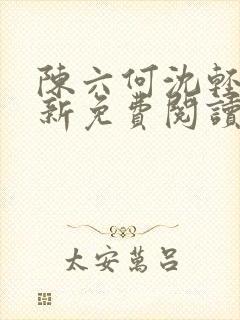 陳六何沈輕
新免費閱讀
太安萬呂